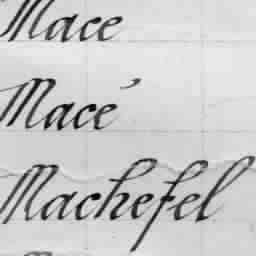 Mace
Macé
Machefel